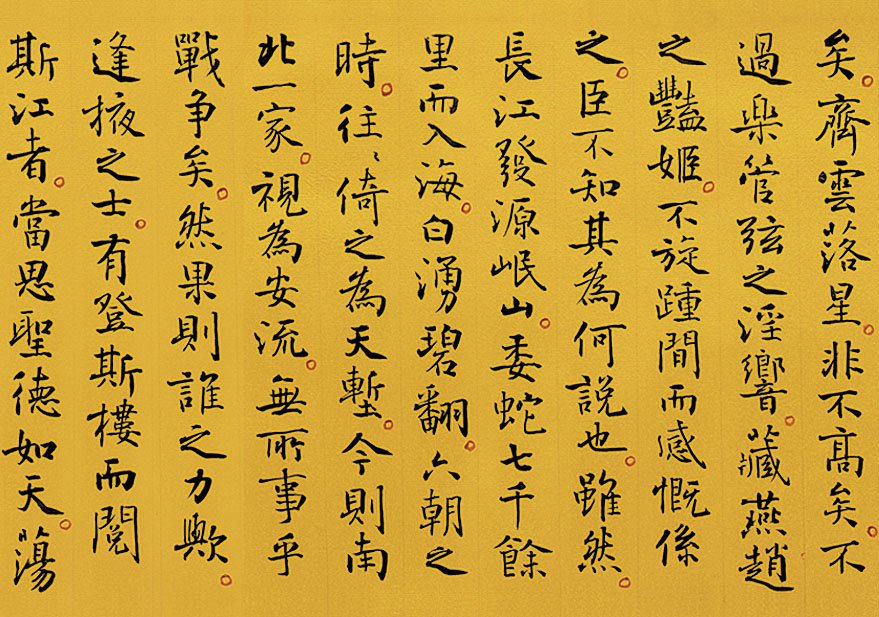 矣。齊雲落星。非不高矣。不
過樂管弦之淫響。藏燕趙
之豔姬。不旋踵間而感慨係
之。臣不知其為何說也。雖然。
長江發源岷山。委蛇七千餘
里而入海。白湧碧翻。六朝之
時。往往倚之為天塹。今則南
北一家。視為安流。無所事乎
戰争矣。然果則誰之力歟。
逢掖之士。有登斯樓而閱
斯江者。當思聖德如天。蕩